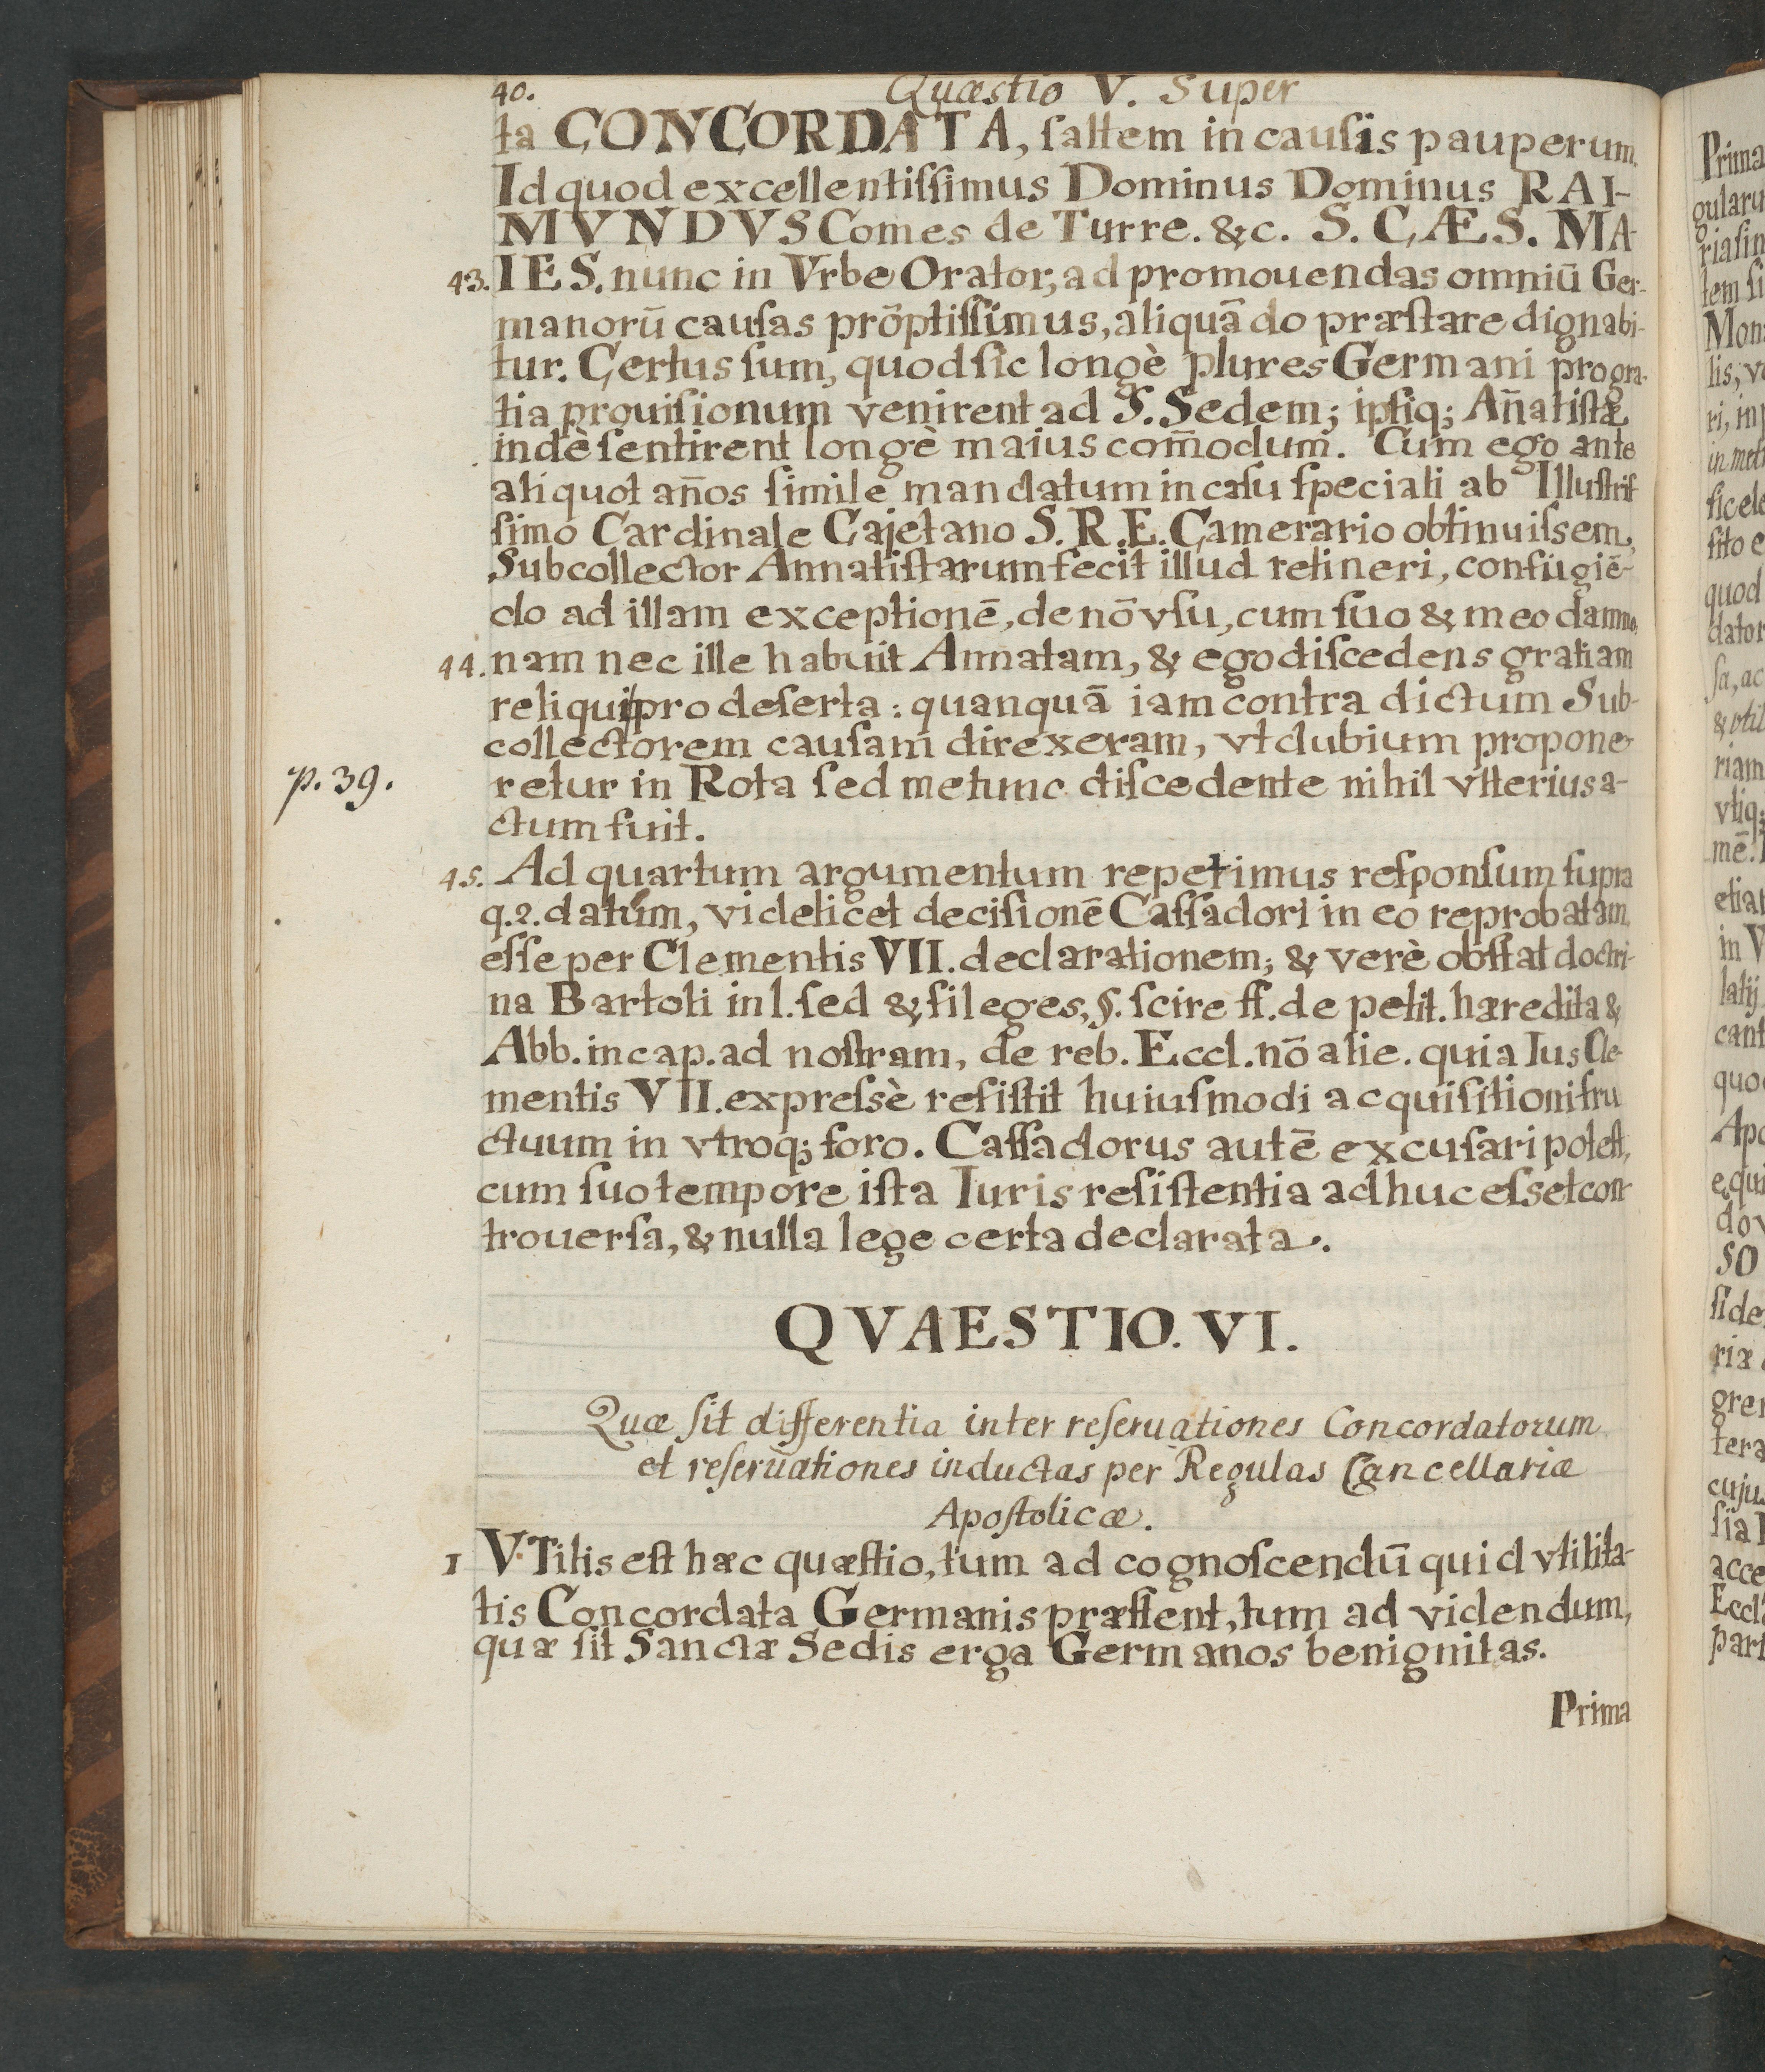 40. Quæstio V. Super
ta CONCORDATA, ſaltem in cauſis pauperum.
Id quod excellentiſſimus Dominus Dominus RAI-
MVNDVS Comes de Turre. &c. S. CÆS. MA-
43. IES. nunc in Vrbe Orator, ad promouendas omniū Ger-
manorū cauſas prōptiſſimus, aliquādo præſtare dignabi-
tur. Certus ſum, quod ſic longè plures Germani pro gra-
tia prouiſionum venirent ad S. Sedem; ipſiq; An̄atiſtæ
indè ſentirent longè maius com̄odum. Cum ego ante
aliquot an̄os ſimile mandatum in caſu ſpeciali ab Illuſtriſ
ſimo Cardinale Cajetano S. R. E. Camerario obtinuiſsem,
Subcollector Annatiſtarum fecit illud retineri, confugiē-
do ad illam exceptionē, de nō vſu, cum ſuo & meo damno,
44. nam nec ille habuit Annatam, & ego diſcedens gratiam
reliqui pro deſerta: quanquā iam contra dictum Sub-
collectorem cauſam direxeram, vt dubium propone-
p. 39. retur in Rota ſed me tunc diſcedente nihil vlterius a-
ctum fuit.
45. Ad quartum argumentum repetimus reſponſum ſupra
q. 2. datum, videlicet deciſionē Caſſadori in eo reprobatam
eſſe per Clementis VII. declarationem; & verè obſtat doctri-
na Bartoli in l. ſed & ſi leges, §. scire ff. de petit. hæredita &
Abb. in cap. ad noſtram, de reb. Eccl. nō alie. quia Ius Cle-
mentis VII. expreſsè reſiſtit huiuſmodi acquiſitioni fru
ctuum in vtroq; foro. Caſſadorus autē excuſari poteſt,
cum ſuo tempore iſta Iuris reſiſtentia adhuc eſset con-
trouerſa, & nulla lege certa declarata.
QVAESTIO. VI.
Quæ ſit differentia inter reſeruationes Concordatorum
et reſeruationes inductas per Regulas Cancellariæ
Apoſtolicæ.
1 VTilis eſt hæc quæſtio, tum ad cognoſcendū quid vtilita-
tis Concordata Germanis præſtent, tum ad videndum,
quæ ſit Sanctæ Sedis erga Germanos benignitas.
Prima
Prima
gularu
riaſin
tem ſi
Mon
lis, v
ri, in
in met
ſic ele
ſito e
quod
dator
ſa, ac
& vtil
riam
vtiq;
mē.
etiar
in V
latij
cant
quo
Apo
equi
do v
SO
ſide
riæ
grer
tera
cuju
ſia
acce
Eccl
part